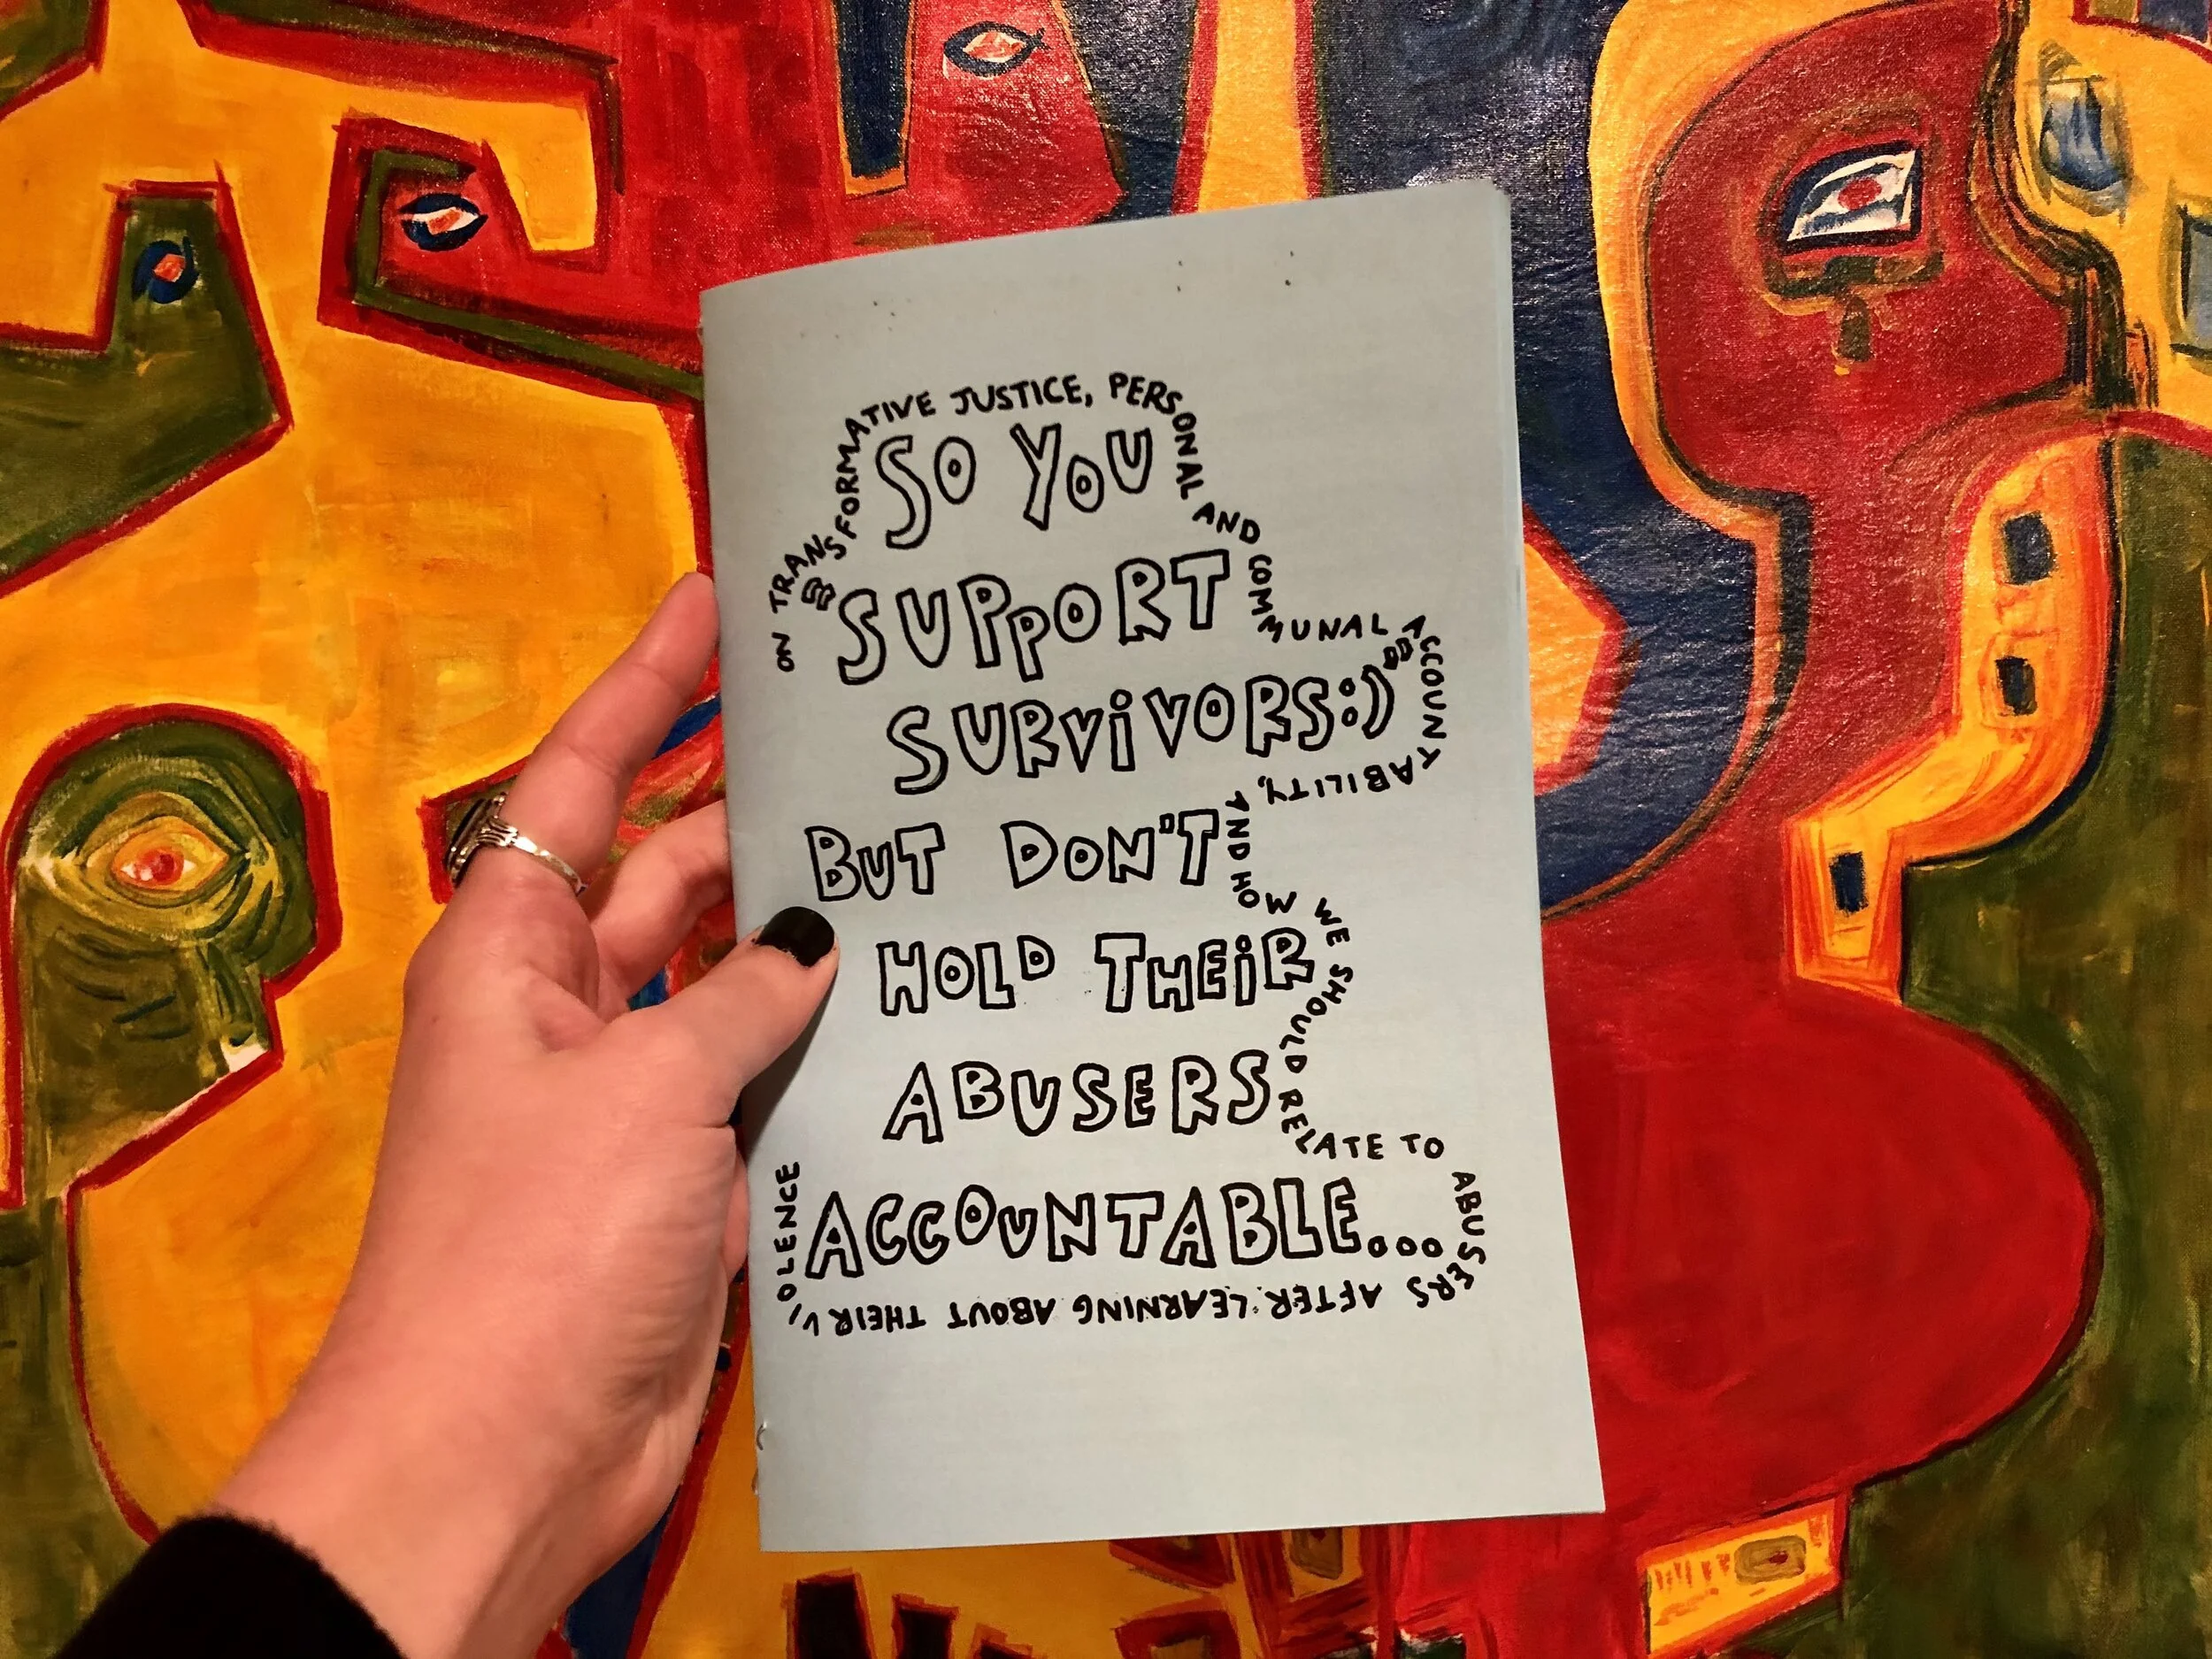 SO YOU
SUPPORT
SURViVORS:)
BUT DON'T
HOLD THEiR
ABUSERS
ACCOUNTABLE...
ON TRANSFORMATIVE JUSTICE, PERSONAL AND COMMUNAL ACCOUNTABILITY, AND HOW WE SHOULD RELATE TO ABUSERS AFTER LEARNING ABOUT THEIR VIOLENCE